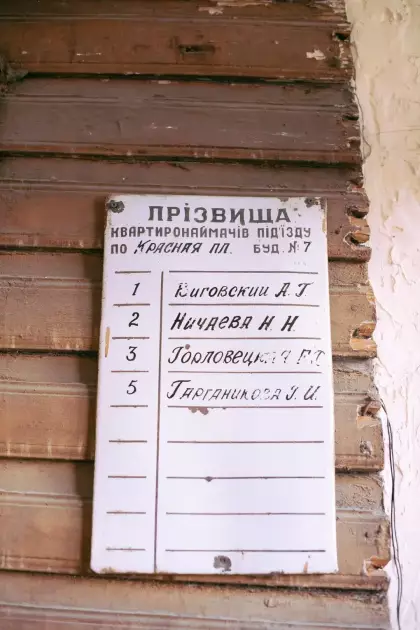 ПРІЗВИЩА
КВАРТИРОНАЙМАЧІВ ПІД'ЇЗДУ
ПО КРАСНАЯ ПЛ. БУД. № 7
1 Виговский А. Г.
2 Ничаева Н. Н.
3
5 Гарганикова У. И.